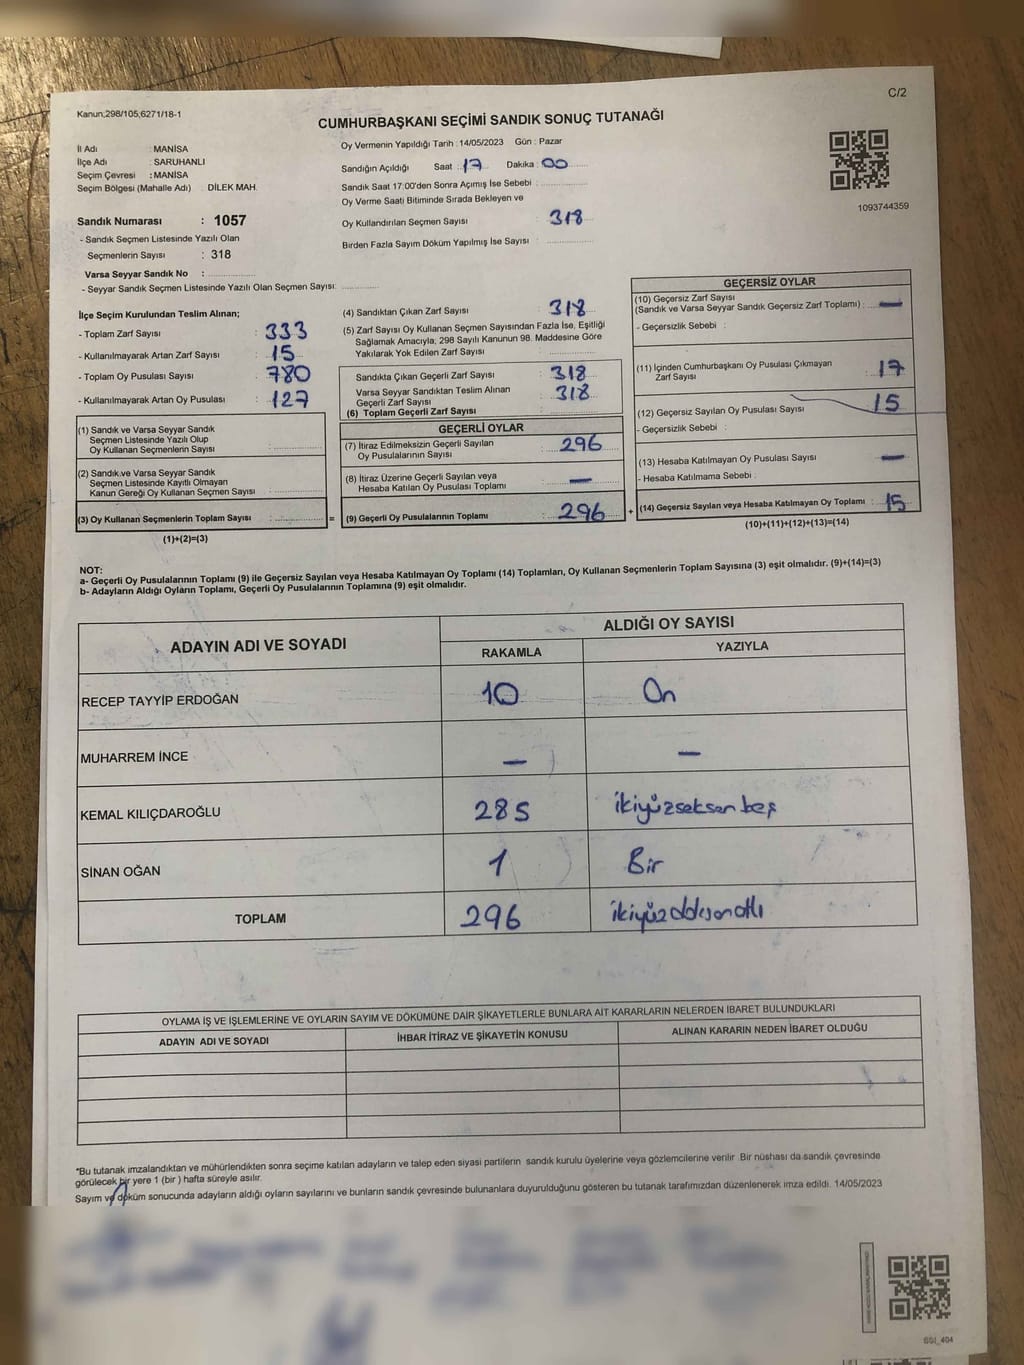 C/2
Kanun;298/105;6271/18-1
CUMHURBAŞKANI SEÇİMİ SANDIK SONUÇ TUTANAĞI
Oy Vermenin Yapıldığı Tarih : 14/05/2023 Gün : Pazar
İl Adı : MANİSA
İlçe Adı : SARUHANLI
Seçim Çevresi : MANİSA
Seçim Bölgesi (Mahalle Adı) : DİLEK MAH.
Sandık Numarası : 1057
- Sandık Seçmen Listesinde Yazılı Olan
Seçmenlerin Sayısı : 318
Varsa Seyyar Sandık No :
- Seyyar Sandık Seçmen Listesinde Yazılı Olan Seçmen Sayısı:
Sandığın Açıldığı Saat : 17 Dakika : 00
Sandık Saat 17:00'den Sonra Açımış İse Sebebi :
Oy Verme Saati Bitiminde Sırada Bekleyen ve
Oy Kullandırılan Seçmen Sayısı : 318
Birden Fazla Sayım Döküm Yapılmış İse Sayısı :
1093744359
İlçe Seçim Kurulundan Teslim Alınan;
- Toplam Zarf Sayısı : 333
- Kullanılmayarak Artan Zarf Sayısı : 15
- Toplam Oy Pusulası Sayısı : 780
- Kullanılmayarak Artan Oy Pusulası : 127
(1) Sandık ve Varsa Seyyar Sandık
Seçmen Listesinde Yazılı Olup
Oy Kullanan Seçmenlerin Sayısı :
(2) Sandık ve Varsa Seyyar Sandık
Seçmen Listesinde Kayıtlı Olmayan
Kanun Gereği Oy Kullanan Seçmen Sayısı :
(3) Oy Kullanan Seçmenlerin Toplam Sayısı : =
(1)+(2)=(3)
(4) Sandıktan Çıkan Zarf Sayısı : 318
(5) Zarf Sayısı Oy Kullanan Seçmen Sayısından Fazla İse, Eşitliği
Sağlamak Amacıyla, 298 Sayılı Kanunun 98. Maddesine Göre
Yakılarak Yok Edilen Zarf Sayısı :
Sandıkta Çıkan Geçerli Zarf Sayısı : 318
Varsa Seyyar Sandıktan Teslim Alınan : 318
Geçerli Zarf Sayısı
(6) Toplam Geçerli Zarf Sayısı :
GEÇERLİ OYLAR
(7) İtiraz Edilmeksizin Geçerli Sayılan : 296
Oy Pusulalarının Sayısı
(8) İtiraz Üzerine Geçerli Sayılan veya : —
Hesaba Katılan Oy Pusulası Toplamı
(9) Geçerli Oy Pusulalarının Toplamı : 296 +
GEÇERSİZ OYLAR
(10) Geçersiz Zarf Sayısı
(Sandık ve Varsa Seyyar Sandık Geçersiz Zarf Toplamı) : —
- Geçersizlik Sebebi :
(11) İçinden Cumhurbaşkanı Oy Pusulası Çıkmayan : 17
Zarf Sayısı
(12) Geçersiz Sayılan Oy Pusulası Sayısı : 15
- Geçersizlik Sebebi :
(13) Hesaba Katılmayan Oy Pusulası Sayısı : —
- Hesaba Katılmama Sebebi :
(14) Geçersiz Sayılan veya Hesaba Katılmayan Oy Toplamı : 15
(10)+(11)+(12)+(13)=(14)
NOT:
a- Geçerli Oy Pusulalarının Toplamı (9) ile Geçersiz Sayılan veya Hesaba Katılmayan Oy Toplamı (14) Toplamları, Oy Kullanan Seçmenlerin Toplam Sayısına (3) eşit olmalıdır. (9)+(14)=(3)
b- Adayların Aldığı Oyların Toplamı, Geçerli Oy Pusulalarının Toplamına (9) eşit olmalıdır.
ADAYIN ADI VE SOYADI
ALDIĞI OY SAYISI
RAKAMLA YAZIYLA
RECEP TAYYİP ERDOĞAN 10 On
MUHARREM İNCE — —
KEMAL KILIÇDAROĞLU 285 ikiyüzseksenbeş
SİNAN OĞAN 1 Bir
TOPLAM 296
OYLAMA İŞ VE İŞLEMLERİNE VE OYLARIN SAYIM VE DÖKÜMÜNE DAİR ŞİKAYETLERLE BUNLARA AİT KARARLARIN NELERDEN İBARET BULUNDUKLARI
ADAYIN ADI VE SOYADI İHBAR İTİRAZ VE ŞİKAYETİN KONUSU ALINAN KARARIN NEDEN İBARET OLDUĞU
*Bu tutanak imzalandıktan ve mühürlendikten sonra seçime katılan adayların ve talep eden siyasi partilerin sandık kurulu üyelerine veya gözlemcilerine verilir. Bir nüshası da sandık çevresinde
görülecek bir yere 1 (bir ) hafta süreyle asılır.
Sayım ve döküm sonucunda adayların aldığı oyların sayılarını ve bunların sandık çevresinde bulunanlara duyurulduğunu gösteren bu tutanak tarafımızdan düzenlenerek imza edildi. 14/05/2023